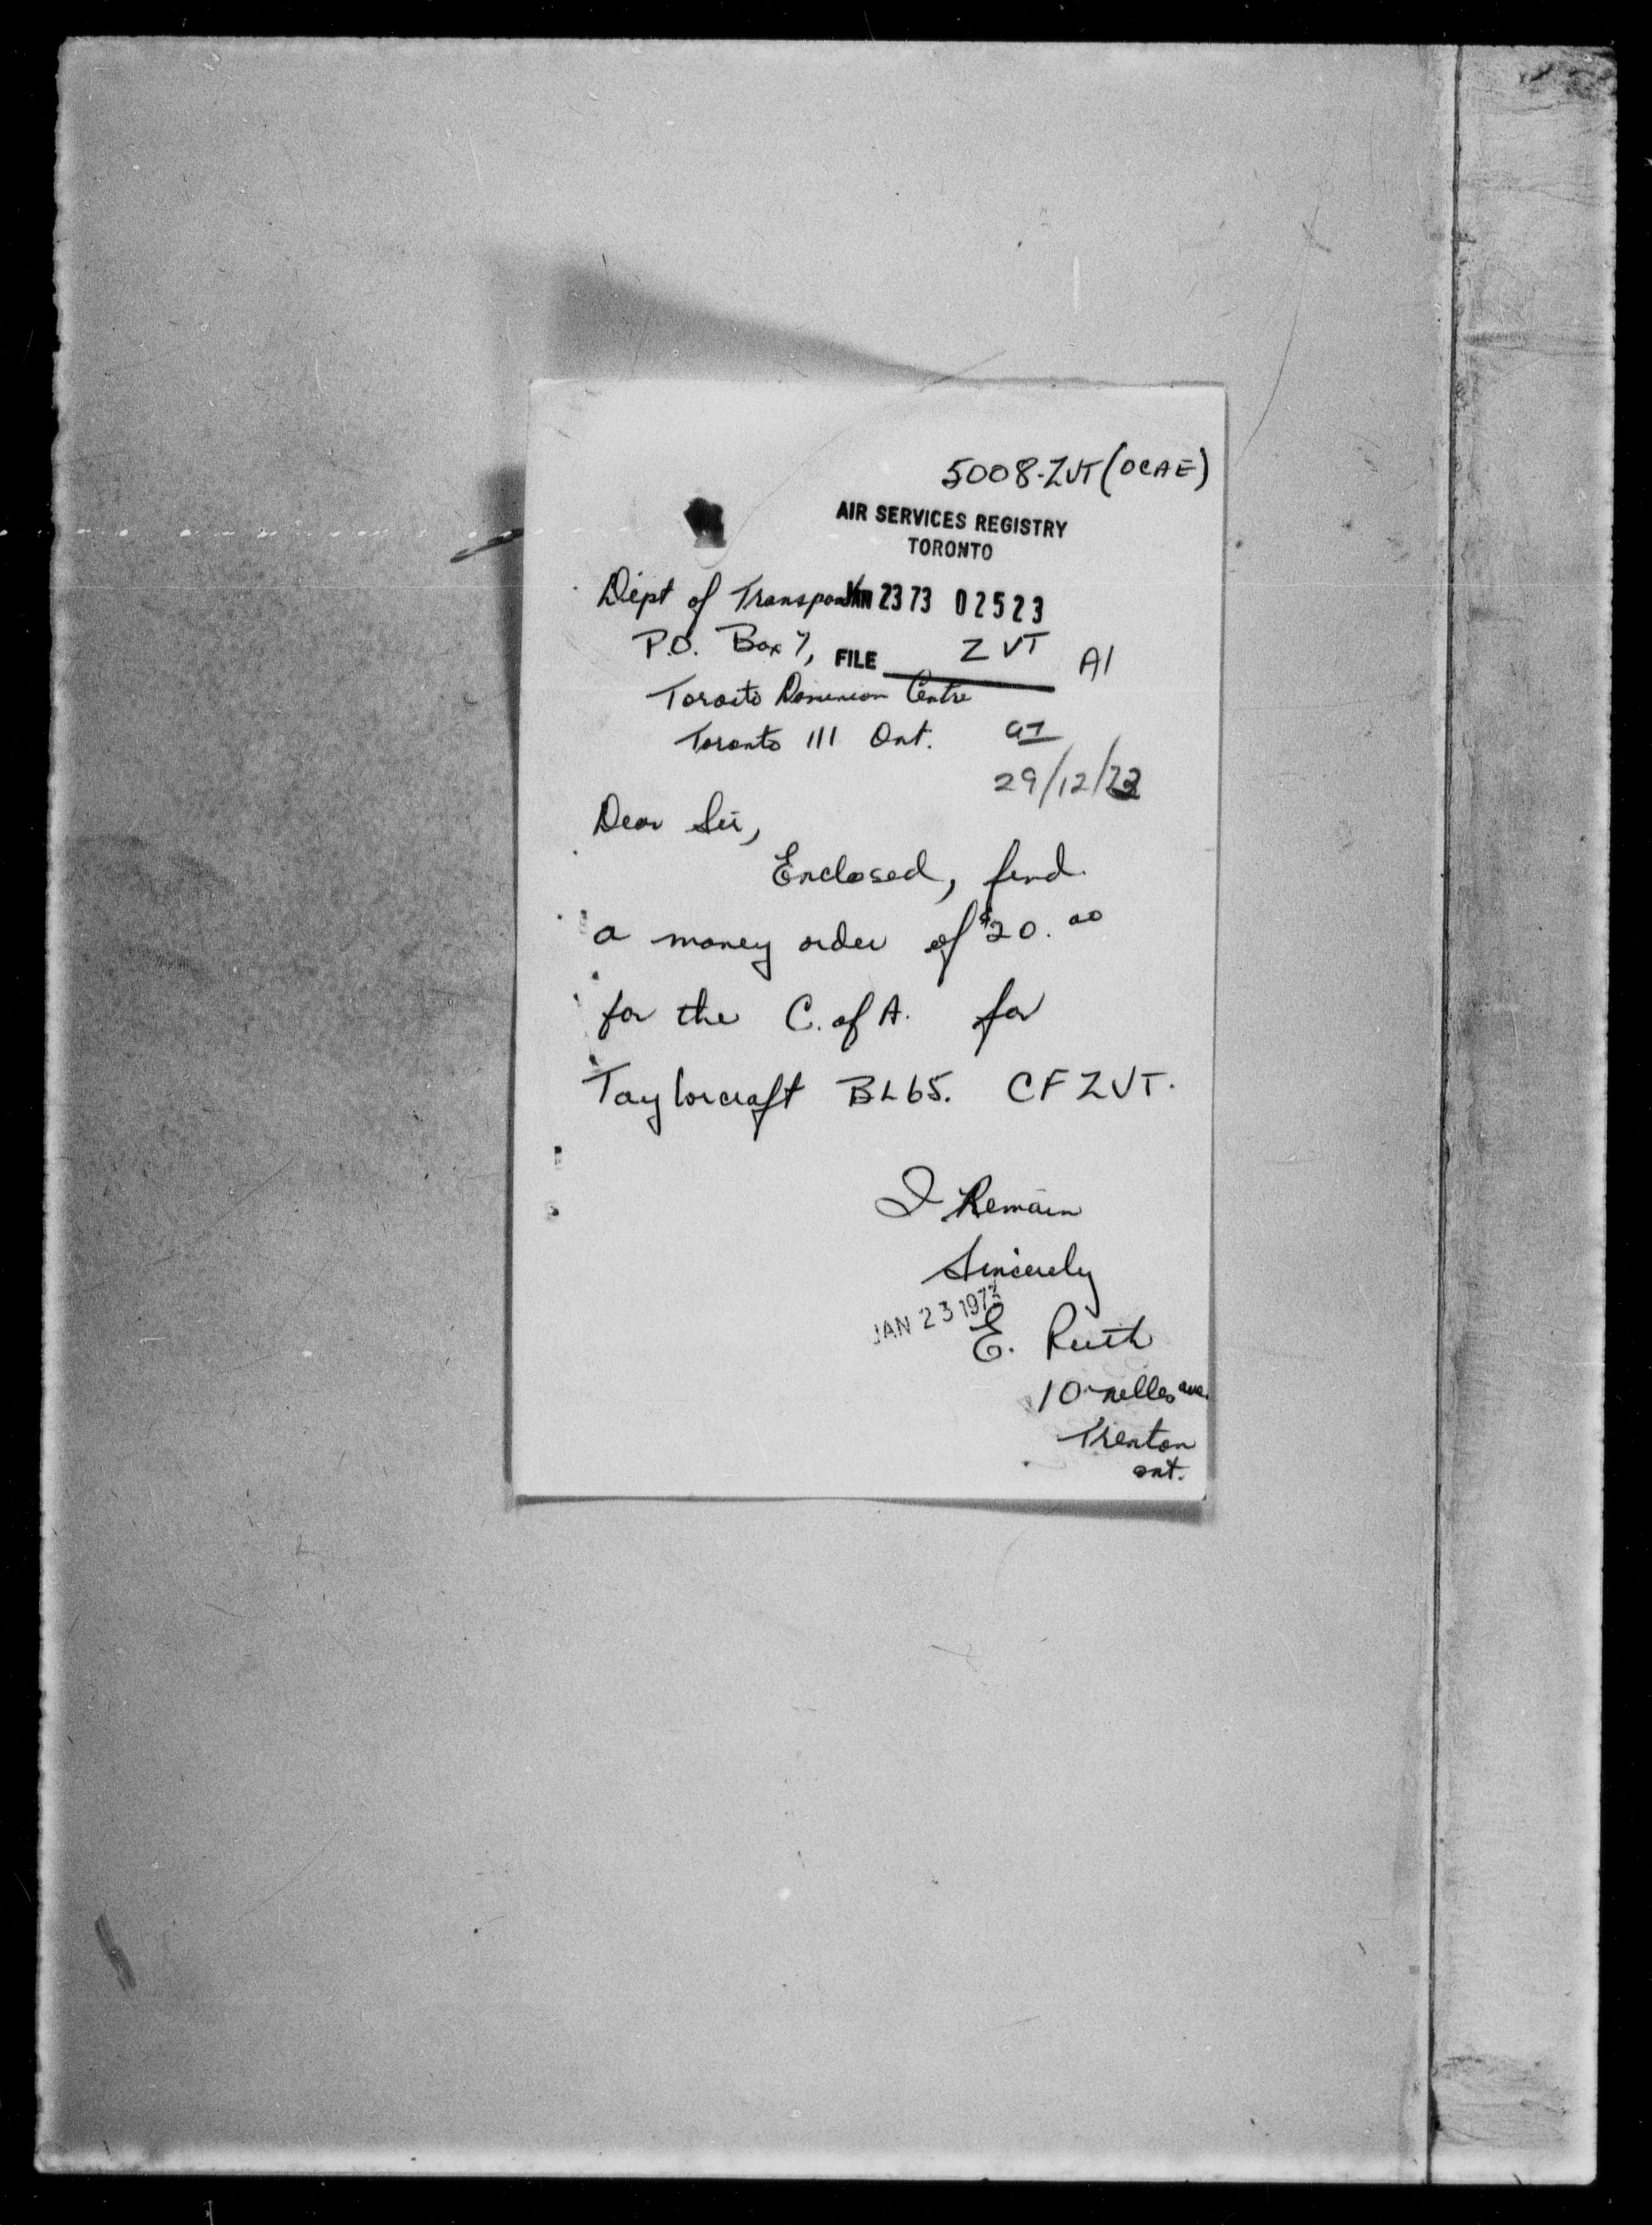 5008-ZVT (OCAE)
AIR SERVICES REGISTRY
TORONTO
Dept of Transport JAN 23 73 02523
P.O. Box 7, FILE ZVT A1
Toronto Dominion Centre
Toronto 111 Ont.
29/12/
Dear Sir,
Enclosed, find
a money order of $20.00
for the C. of A. for
Taylorcraft BL65. CFZVT.
I Remain
Sincerely
JAN 23 1973
E. Ruth
10 nelles ave.
Trenton
ont.